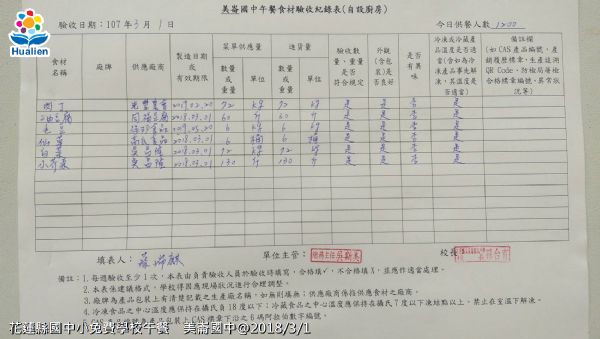 Hualien
美崙國中午餐食材驗收紀錄表(自設廚房)
驗收日期:107年3月1日
今日供餐人數:1200
食材名稱 廠牌 供應廠商 製造日期或有效期限 菜單供應量 送貨量 驗收數量、重量是否符合規定 外觀(含包裝)是否良好 是否有異味 冷凍或冷藏產品溫度是否適當(如為冷凍產品事先解凍,其溫度是否適當) 備註欄(如CAS產品編號、產銷履歷標章、生產追溯QR Code、防檢局屠檢合格標章編號、異常狀況等)
數量或重量 單位 數量或重量 單位
肉丁 2019.02.20 92 92 是 是 否 是
油豆腐 2018.03.01 60 斤 60 斤 是 是 否 是
6 6 是 是 否 是
仙草 2018.03.01 6 桶 6 桶 是 是 否 是
白菜 2018.03.01 92 92 是 是 否 是
小芥菜 2018.03.01 130 斤 130 斤 是 是 否 是
填表人: 單位主管: 校長
備註:1.每週驗收至少1次,本表由負責驗收人員於驗收時填寫,合格填✓,不合格填X,並應作適當處理。
2.本表係建議格式,學校得因應現場狀況自行合理調整。
3.廠牌為產品包裝上有清楚記載之生產廠名稱,如無則填無;供應廠商係指供應食材之廠商。
4.冷凍食品之中心溫度應保持在攝氏負18度以下;冷藏食品之中心溫度應保持在攝氏7度以下凍結點以上,禁止在室溫下解凍。
5.CAS產品編號為產品包裝上CAS標章下沿之6碼阿拉伯數字編號。
花蓮縣國中小免費學校午餐 美崙國中@2018/3/1